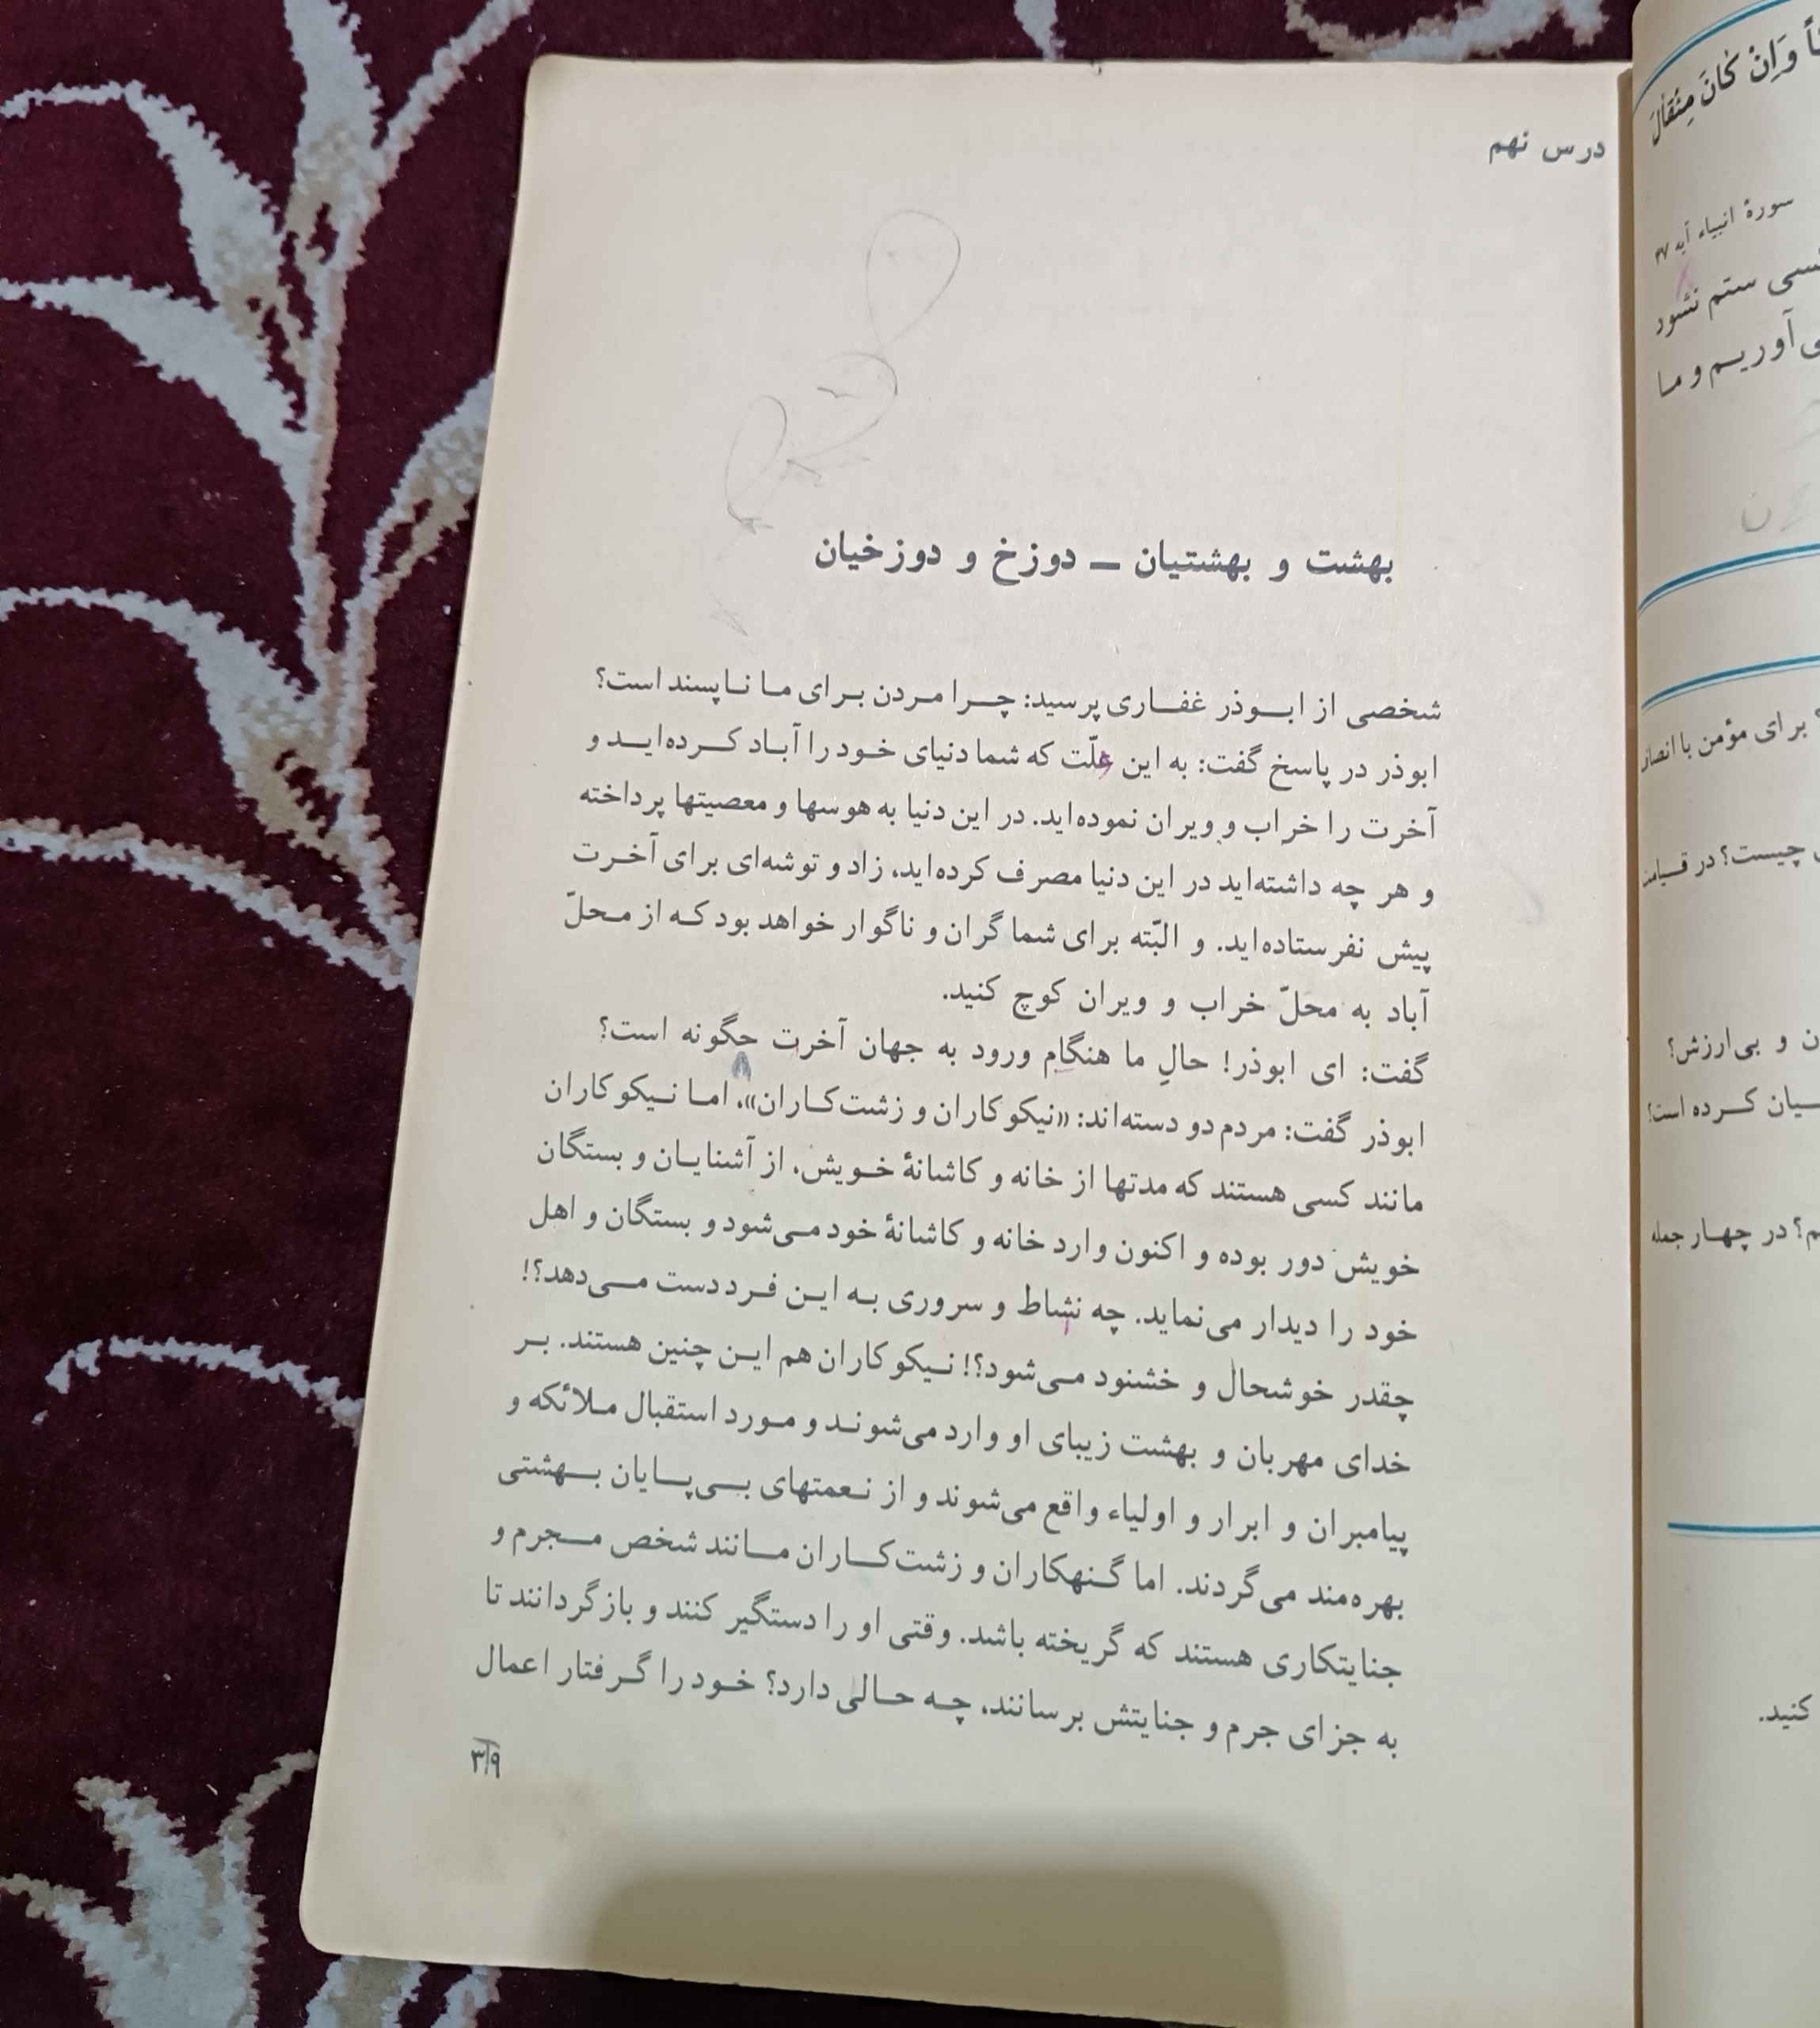 درس نهم
بهشت و بهشتیان ــ دوزخ و دوزخیان
شخصی از ابوذر غفاری پرسید: چرا مردن برای ما ناپسند است؟
ابوذر در پاسخ گفت: به این علّت که شما دنیای خود را آباد کرده‌اید و
آخرت را خراب و ویران نموده‌اید. در این دنیا به هوسها و معصیتها پرداخته
و هر چه داشته‌اید در این دنیا مصرف کرده‌اید، زاد و توشه‌ای برای آخرت
پیش نفرستاده‌اید. و البّته برای شما گران و ناگوار خواهد بود که از محلّ
آباد به محلّ خراب و ویران کوچ کنید.
گفت: ای ابوذر! حالِ ما هنگام ورود به جهان آخرت چگونه است؟
ابوذر گفت: مردم دو دسته‌اند: «نیکوکاران و زشت‌کاران»، اما نیکوکاران
مانند کسی هستند که مدتها از خانه و کاشانهٔ خویش، از آشنایان و بستگان
خویش دور بوده و اکنون وارد خانه و کاشانهٔ خود می‌شود و بستگان و اهل
خود را دیدار می‌نماید. چه نشاط و سروری به این فرد دست می‌دهد؟!
چقدر خوشحال و خشنود می‌شود؟! نیکوکاران هم این چنین هستند. بر
خدای مهربان و بهشت زیبای او وارد می‌شوند و مورد استقبال ملائکه و
پیامبران و ابرار و اولیاء واقع می‌شوند و از نعمتهای بی‌پایان بهشتی
بهره‌مند می‌گردند. اما گنهکاران و زشت‌کاران مانند شخص مجرم و
جنایتکاری هستند که گریخته باشد. وقتی او را دستگیر کنند و بازگردانند تا
به جزای جرم و جنایتش برسانند، چه حالی دارد؟ خود را گرفتار اعمال
۳۹
وَاِنْ كٰانَ مِثْقٰالَ
سورهٔ انبیاء آیه ۴۷
ستم نشود
آوریم و ما
برای مؤمن با
چیست؟ در
و بی‌ارزش؟
کرده است؟
در چهار جمله
کنید.